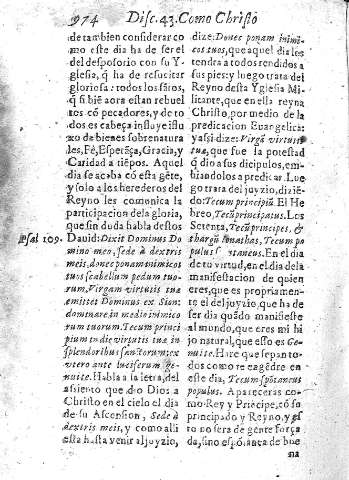 974 Disc. 43. Como Christo
de tambien considerar co
mo este dia ha de ser el
del desposorio con su Y-
glesia, q̃ ha de resucitar
gloriosa: todos los sãtos,
q̃ si biẽ aora estan rebuel
tos cõ pecadores, y de to
dos es cabeça influye isluxo
de bienes sobrenatura
les, Fè, Esperãça, Gracia, y
Caridad a tiẽpos. Aquel
dia se acaba cõ esta gẽte,
y solo a los herederos del
Reyno les comonica la
participacion dela gloria,
que sin duda habla destos
Psal 109. Dauid: Dixit Dominus Do
mino meo, sede à dextris
meis, donec ponam inimicos
tuos scabellum pedum tuo-
rum, Virgam virtutis tuæ
emittet Dominus ex Sion:
dominare in medio inimico
rum tuorum. Tecum princi
pium in die virtutis tuæ in
splendoribus sanctorum: ex
vtero ante luciferum ge-
nuite. Habla a la letra, del
assiento que dio Dios a
Christo en el cielo el dia
de su Ascension, Sede à
dextris meis, y como alli
està hasta venir al juyzio,
dize: Donec ponam inimi-
cos tuos, que aquel dia los
tendra a todos rendidos a
sus pies: y luego trata del
Reyno desta Yglesia Mi
litante, que en ella reyna
Christo, por medio de la
predicacion Euangelica:
y assi dize: Virgã virtutis
tuæ, que fue la potestad
q̃ dio a sus dicipulos, em-
biandolos a predicar. Lue
go trata del juyzio, diziẽ-
do: Tecum principiũ. El He
breo, Tecũ principatus. Los
Setenta, Tecũ principes, &
thargũ Ionathas, Tecum po
pulus spontaneus. En el dia
de tu virtud, en el dia de la
manifestacion de quien
eres, que es propriamen-
te el del juyzio, que ha de
ser dia quãdo manifieste
al mundo, que eres mi hi
jo natural, que esso es Ge-
nuite. Hare que sepan to-
dos como te engẽdre en
este dia, Tecum spõtaneus
populus. Apareceras co-
mo Rey y Prĩcipe, cõ su
principado y Reyno, y es
to no sera de gente força
da, sino espõtanea de bue
na